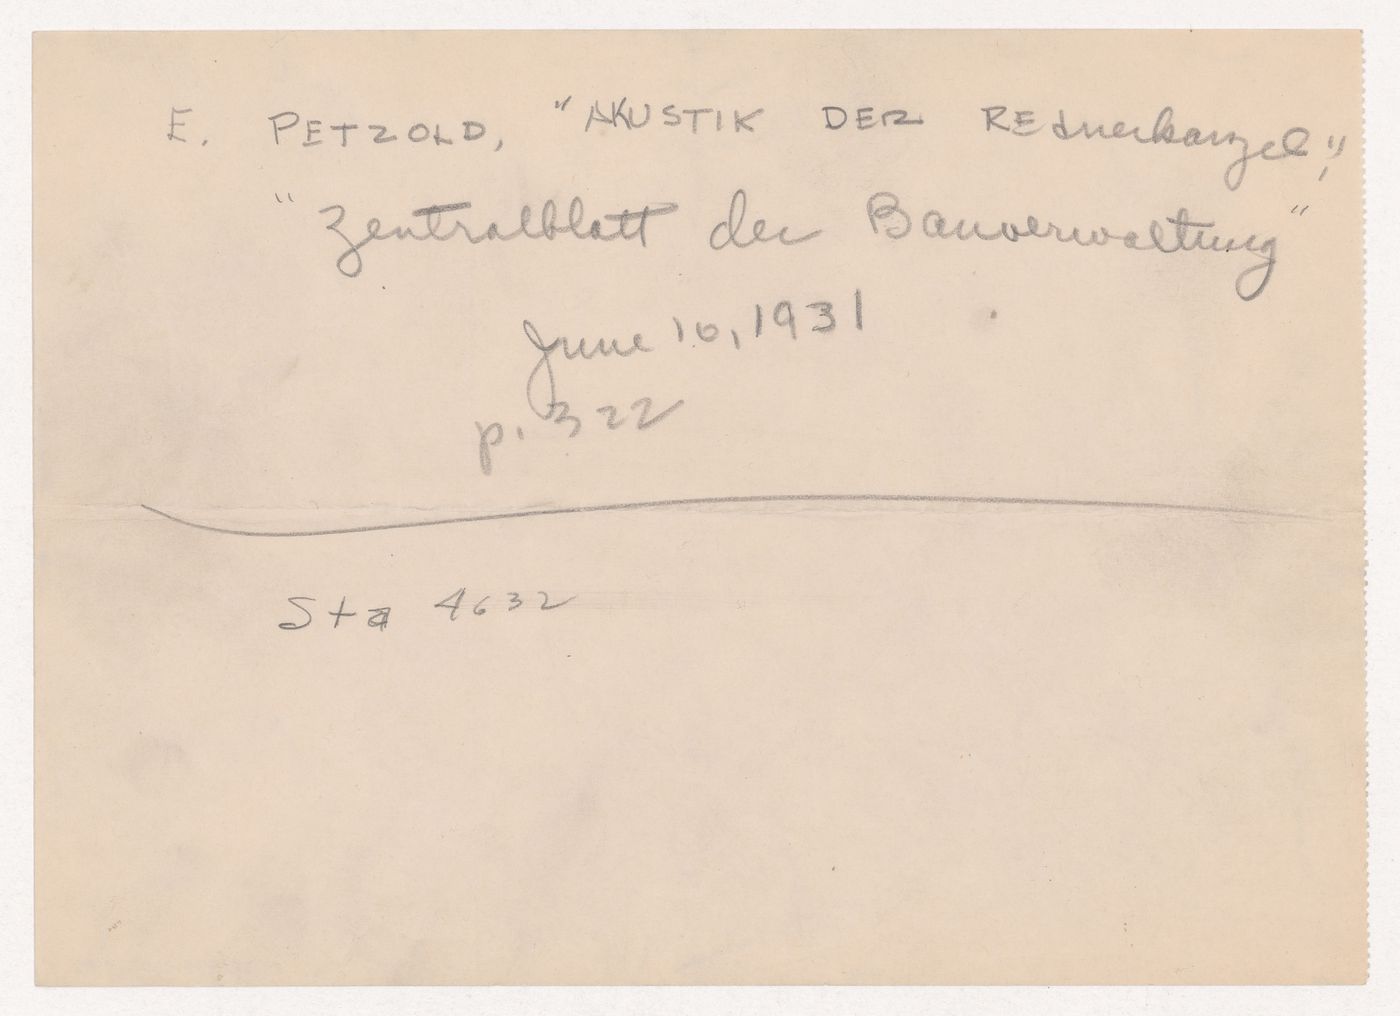 E. PETZOLD, "AKUSTIK DER REdnerkanzel",
"Zentralblatt der Bauverwaltung"
June 10, 1931
p. 322
Sta 4632